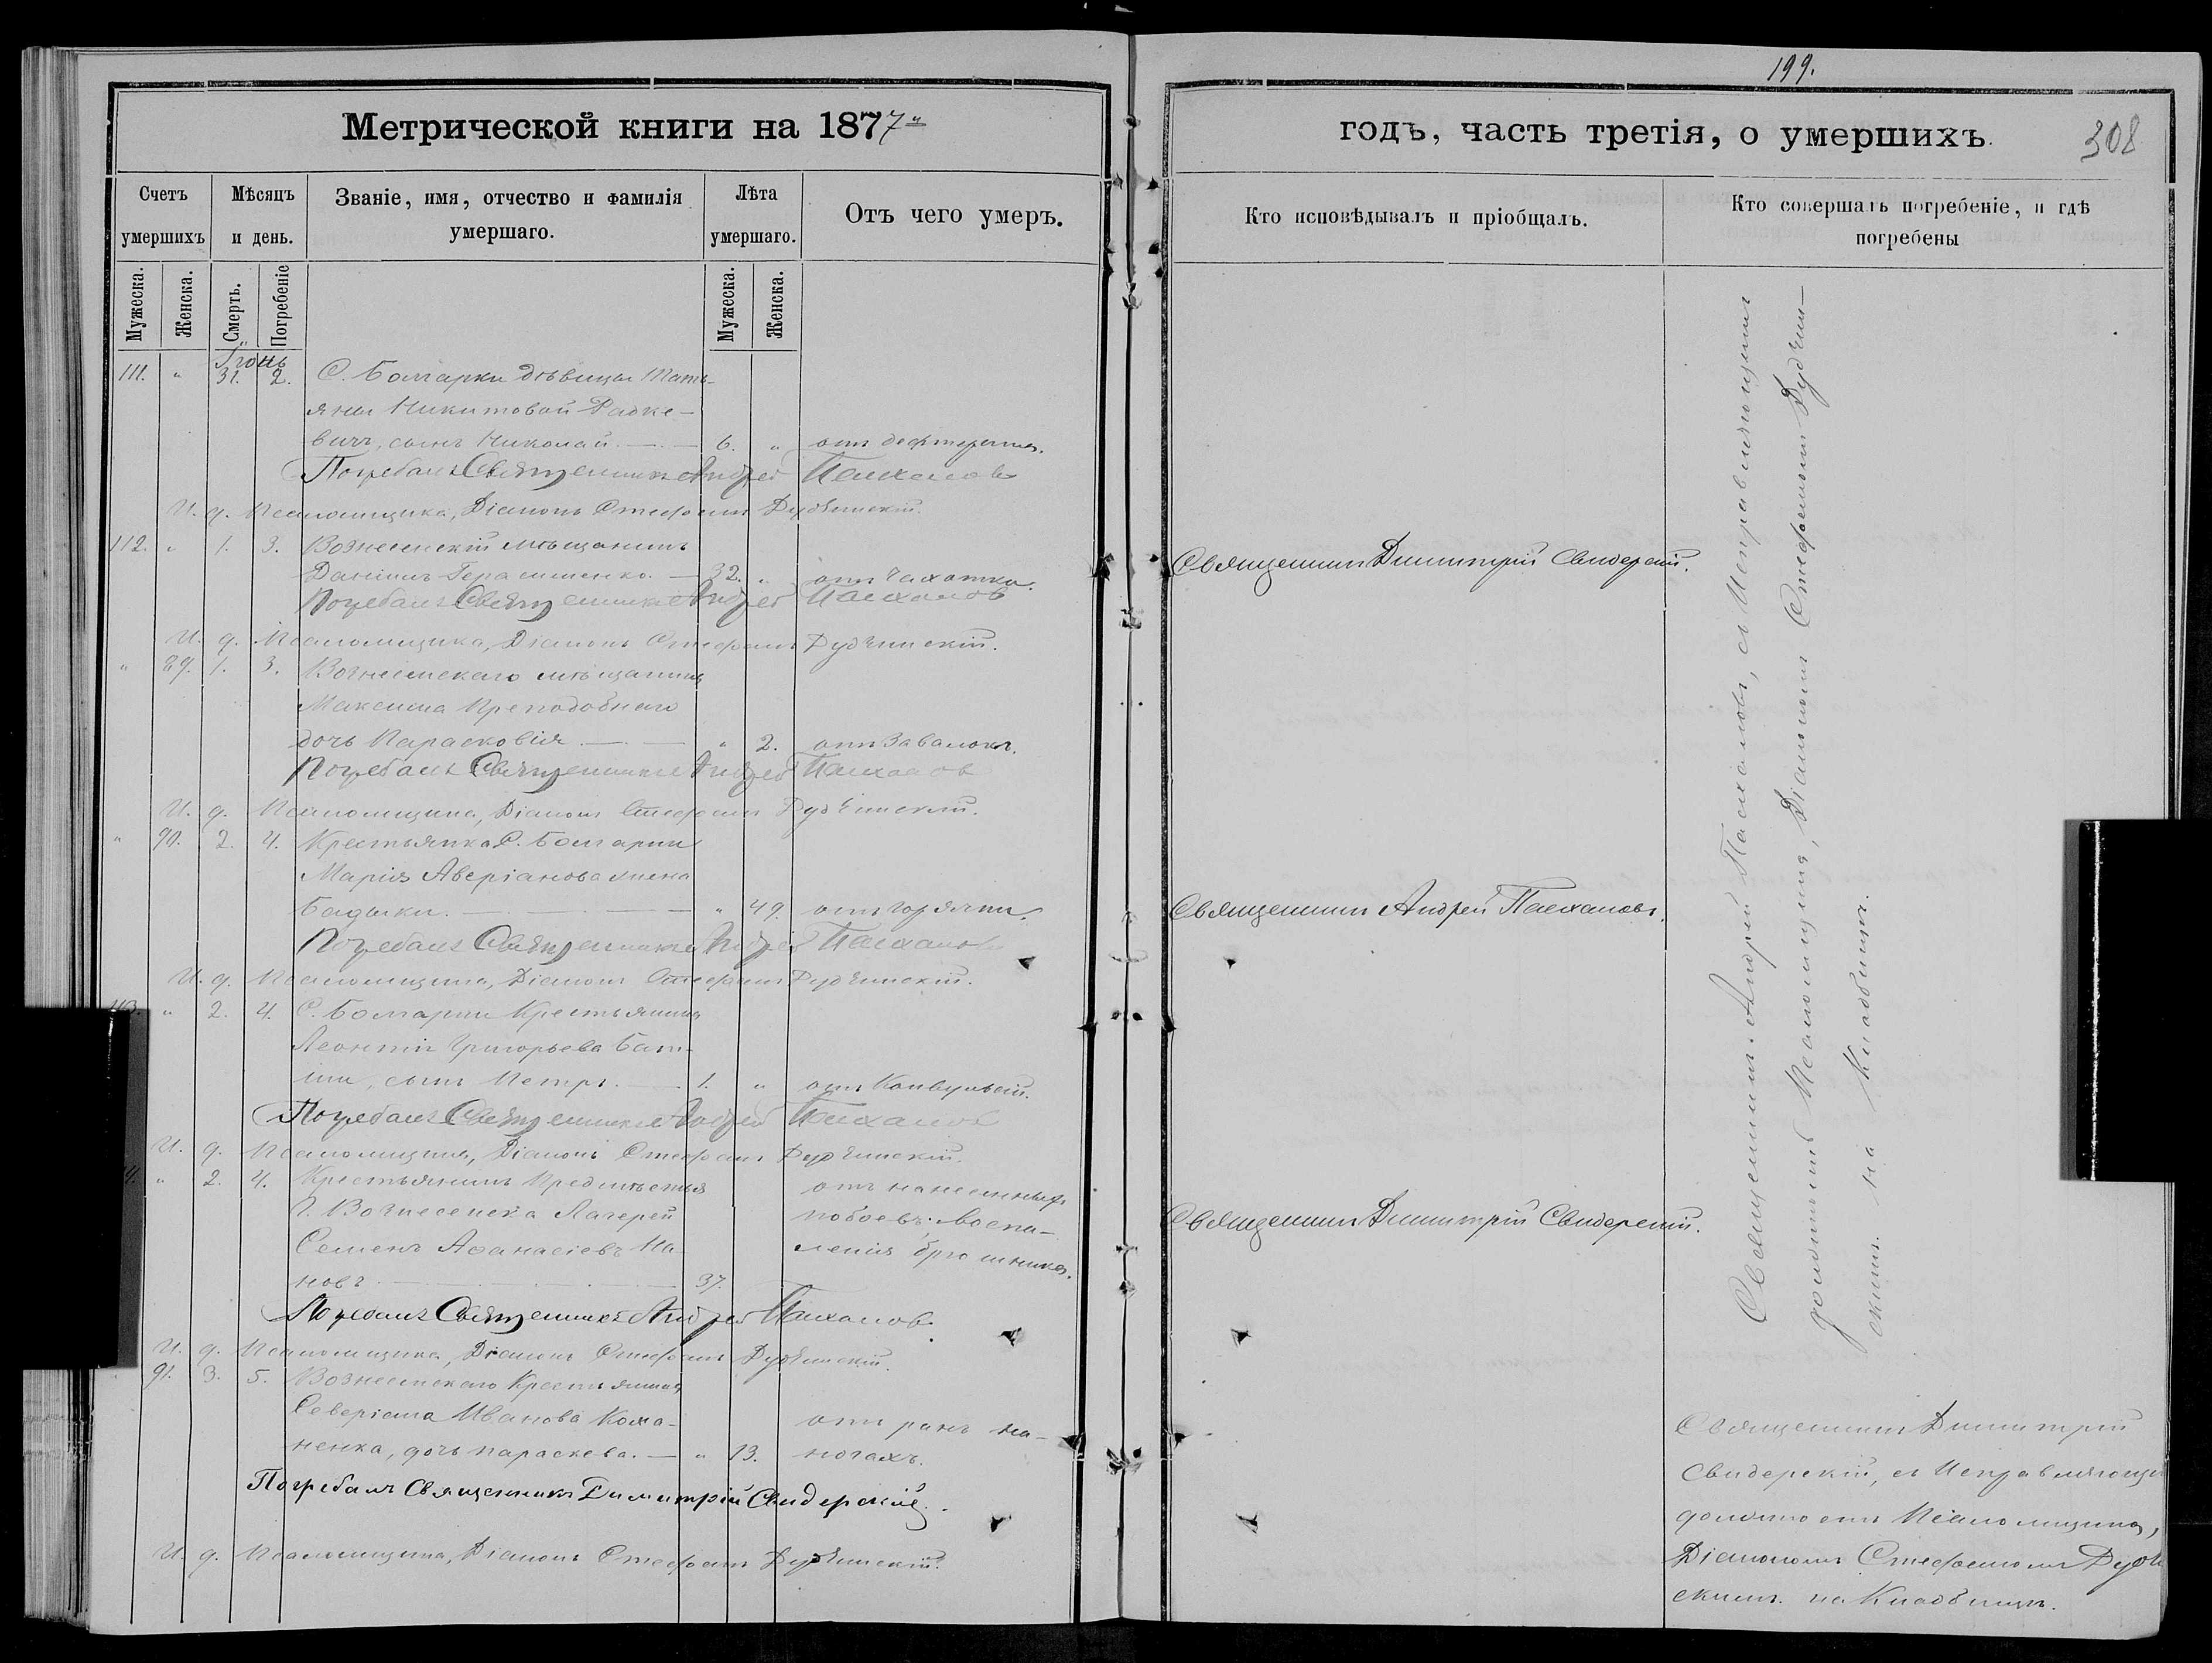 199.
308
Метрической книги на 1877й
годъ, часть третія, о умершихъ.
Счетъ умершихъ
Мѣсяцъ и день.
Званіе, имя, отчество и фамилія умершаго.
Лѣта умершаго.
Отъ чего умеръ.
Кто исповѣдывалъ и пріобщалъ.
Кто совершалъ погребеніе, и гдѣ погребены
Мужеска.
Женска.
Смерть.
Погребеніе
Мужеска.
Женска.
Іюнь
111. " 31. 2. С. Болгарки дѣвицы Тать-
яны Никитовой Радке-
вичъ, сынъ Николай. — 6. " отъ дефтерита.
Погребалъ Священникъ Андрей Пасхаловъ
И. д. Псаломщика, Діаконъ Стефанъ Дудчинскій.
112. " 1. 3. Вознесенскій мѣщанинъ
Даніилъ Герасименко. — 32. " отъ чахотки. Священникъ Димитрій Свидерскій.
Погребалъ Священникъ Андрей Пасхаловъ
И. д. Псаломщика, Діаконъ Стефанъ Дудчинскій.
" 89. 1. 3. Вознесенскаго мѣщанина
Максима Преподобнаго
дочь Парасковія — " 2. отъ завалокъ.
Погребалъ Священникъ Андрей Пасхаловъ
И. д. Псаломщика, Діаконъ Стефанъ Дудчинскій.
" 90. 2. 4. Крестьянка С. Болгарки
Марія Аверіанова жена
— " 49. отъ горячки. Священникъ Андрей Пасхаловъ.
Погребалъ Священникъ Андрей Пасхаловъ
И. д. Псаломщика, Діаконъ Стефанъ Дудчинскій.
113. " 2. 4. С. Болгарки Крестьянина
Леонтія Григорьева
сынъ Петръ. — 1. " отъ Конвульсій.
Погребалъ Священникъ Андрей Пасхаловъ
И. д. Псаломщика, Діаконъ Стефанъ Дудчинскій.
" 2. 4. Крестьянинъ Предмѣстья отъ нанесенныхъ
Г. Вознесенска Лагерей побоевъ, воспа- Священникъ Димитрій Свидерскій.
Семенъ Аѳанасіевъ ленія брюшника.
новъ — 37.
Погребалъ Священникъ Андрей Пасхаловъ.
И. д. Псаломщика, Діаконъ Стефанъ Дудчинскій.
91. 3. 5. Вознесенскаго Крестьянина
Северіана Иванова Кома- отъ ранъ на
ненка, дочь Параскева. — " 13. ногахъ.
Погребалъ Священникъ Димитрій Свидерскій.
И. д. Псаломщика, Діаконъ Стефанъ Дудчинскій.
Священникъ Андрей Пасхаловъ, съ Исправляющимъ
должность Псаломщика, Діакономъ Стефаномъ Дудчин-
скимъ. на Кладбищѣ.
Священникъ Димитрій
Свидерскій, съ Исправляющ
должность Псаломщика,
Діакономъ Стефаномъ Дудч
скимъ. на Кладбищѣ.